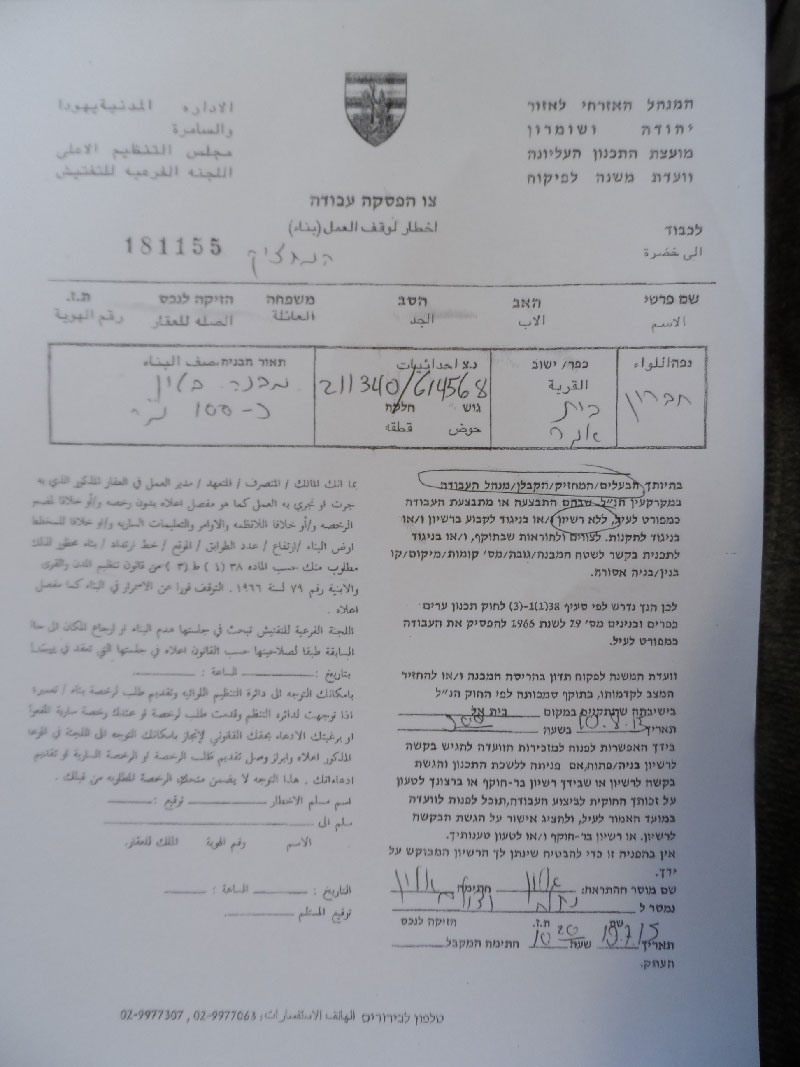 המנהל האזרחי לאזור
יהודה ושומרון
מועצת התכנון העליונה
וועדת משנה לפיקוח
الاداره المدنية يهودا
والسامرة
مجلس التنظيم الاعلى
اللجنه الفرعيه للتفتيش
צו הפסקה עבודה
اخطار لوقف العمل (بناء)
181155
לכבוד
الى حضرة
שם פרטי האב הסב משפחה הזיקה לנכס ת.ז.
الاسم الاب الجد العائلة الصله للعقار رقم الهوية
נפה/לواء
חברון
כפר/ ישוב
القرية
בית
נ.צ احداثيات
211340/614568
גוש חלקה
حوض قطعة
תאור הבניה.صف البناء
מבנה
כ-100
בהיותך הבעלים/המחזיק/הקבלן/מנהל העבודה
במקרקעין הנ"ל, שבהם התבצעה או מתבצעת העבודה
כמפורט לעיל, ללא רשיון ו/או בניגוד לקבוע ברשיון ו/או
בניגוד לתקנות. לצווים ולהוראות שבתוקף, ו/או בניגוד
לתכנית בקשר לשטח המבנה/גובה/מס' קומות/מיקום/קו
בנין/בניה אסורה.
לכן הנך נדרש לפי סעיף 38(1)-(3) לחוק תכנון ערים
כפרים ובנינים מס' 79 לשנת 1966 להפסיק את העבודה
כמפורט לעיל.
וועדת המשנה לפקוח תדון בהריסת המבנה ו/או להחזיר
המצב לקדמותו, בתוקף סמכותה לפי החוק הנ"ל
בישיבתה שתתקיים במקום בית אל
תאריך בשעה
בידך האפשרות לפנות למזכירות הוועדה להגיש בקשה
לרשיון בניה/פתוח, אם פניתה ללשכת התכנון והגשת
בקשה לרשיון או שבידך רשיון בר-תוקף או ברצונך לטעון
על זכותך החוקית לביצוע העבודה, תוכל לפנות לוועדה
במועד האמור לעיל, ולהציג אישור על הגשת הבקשה
לרשיון. או רשיון בר-תוקף ו/או לטעון טענותיך.
אין בהפניה זו כדי להבטיח שינתן לך הרשיון המבוקש על
ידך.
שם מוסר ההתראה: חתימה
נמסר ל
שם ת.ז. הזיקה לנכס
תאריך 19.7.15 שעה 10 20 חתימה המקבל
העתק.
بما انك المالك / المتصرف / المتعهد / مدير العمل في العقار المذكور الذي به
جرت او تجري به العمل كما هو مفصل اعلاه بدون رخصه و/أو خلافا لقسم
الرخصه و/أو خلافا للانظمه والاوامر والتعليمات الساريه و/او خلافا للمخطط
ارض البناء /ارتفاع / عدد الطوابق / الموقع / خط ارتداد / بناء محظور لذلك
مطلوب منك حسب الماده ٣٨ (١) ط (٣) من قانون تنظيم المدن والقرى
والابنية رقم ٧٩ لسنة ١٩٦٦. التوقف فورا عن الاستمرار في البناء كما مفصل
اعلاه.
اللجنة الفرعية للتفتيش تبحث في جلستها هدم البناء او ارجاع المكان الى حالته
السابقة طبقا لصلاحيتها حسب القانون اعلاه في جلستها التي تعقد في
بتاريخ: الساعة:
بامكانك التوجه الى دائرة التنظيم اللوائيه وتقديم طلب لرخصة بناء /
اذا توجهت لدائره التنظم وقدمت طلب لرخصة او عندك رخصة سارية المفعول
او برغبتك الادعاء بحقك القانوني لإنجاز بامكانك التوجه الى اللجنة في الموعد
المذكور اعلاه وابراز وصل تقديم طلب الرخصة او الرخصة السارية او تقديم
ادعاءاتك. هذا التوجه لا يضمن منحك الرخصة المطلوبه من قبلك.
اسم مسلم الاخطار توقيع:
سلم الى
الاسم رقم الهوية الملك للعقار.
التاريخ: الساعة:
توقيع المستلم
טלפון לבירורים الهاتف الاستفسارات: 02-9977063, 02-9977307